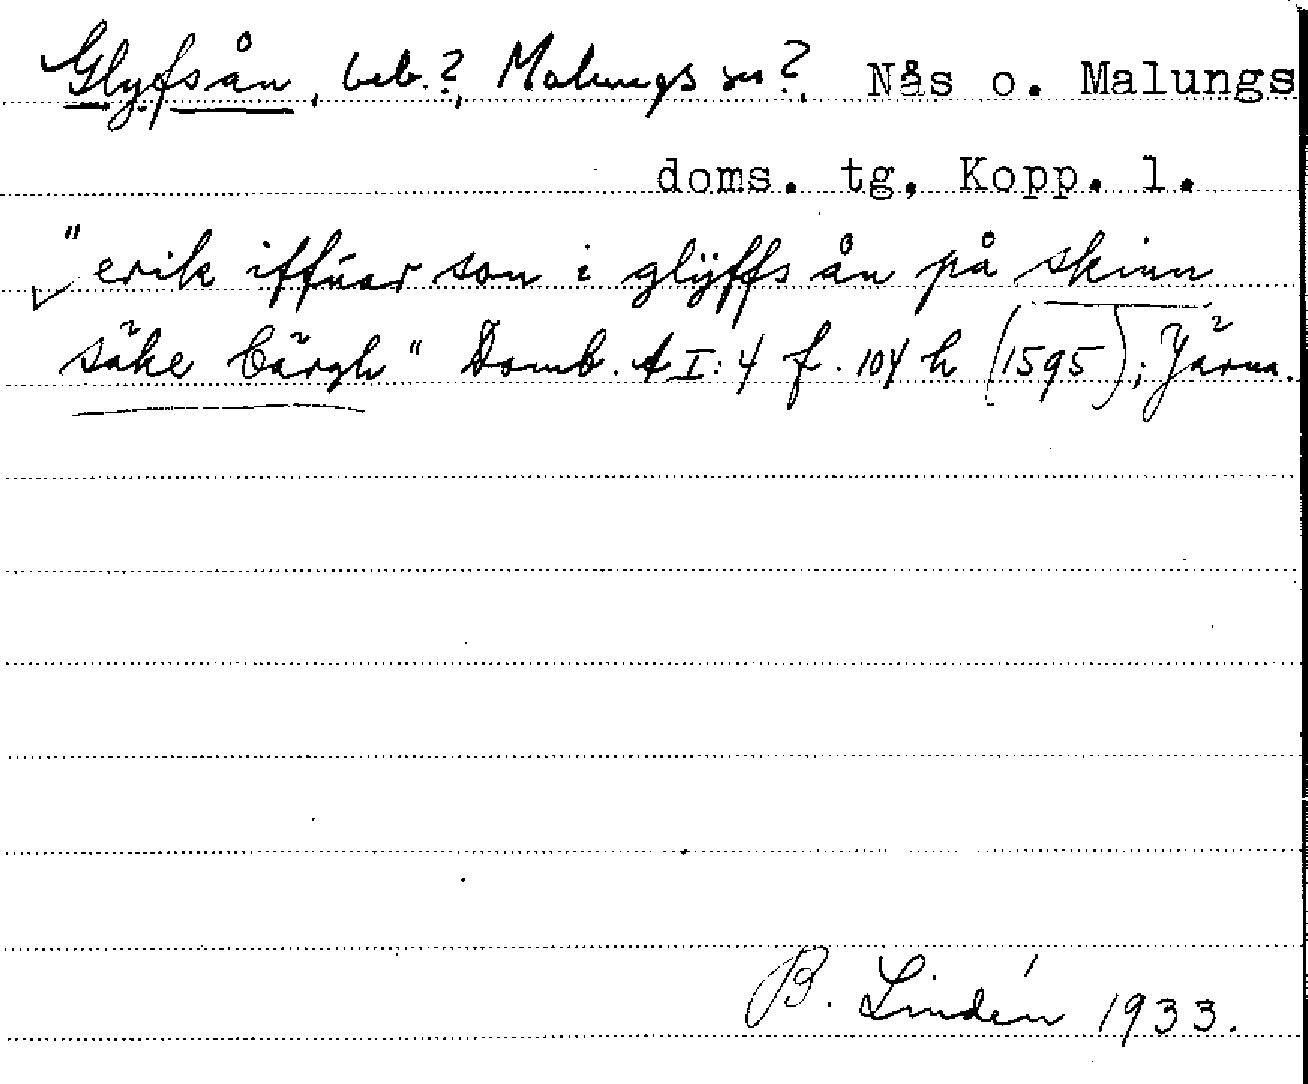 Glyfsån, beb.?, Malungs sn?, Nås o. Malungs
doms. tg, Kopp. l.
"erik iffúar son i glÿffs ån på skinn
säke bärgh" Domb. A I:4 f. 104 h (1595); Järna.
B. Lindén 1933.